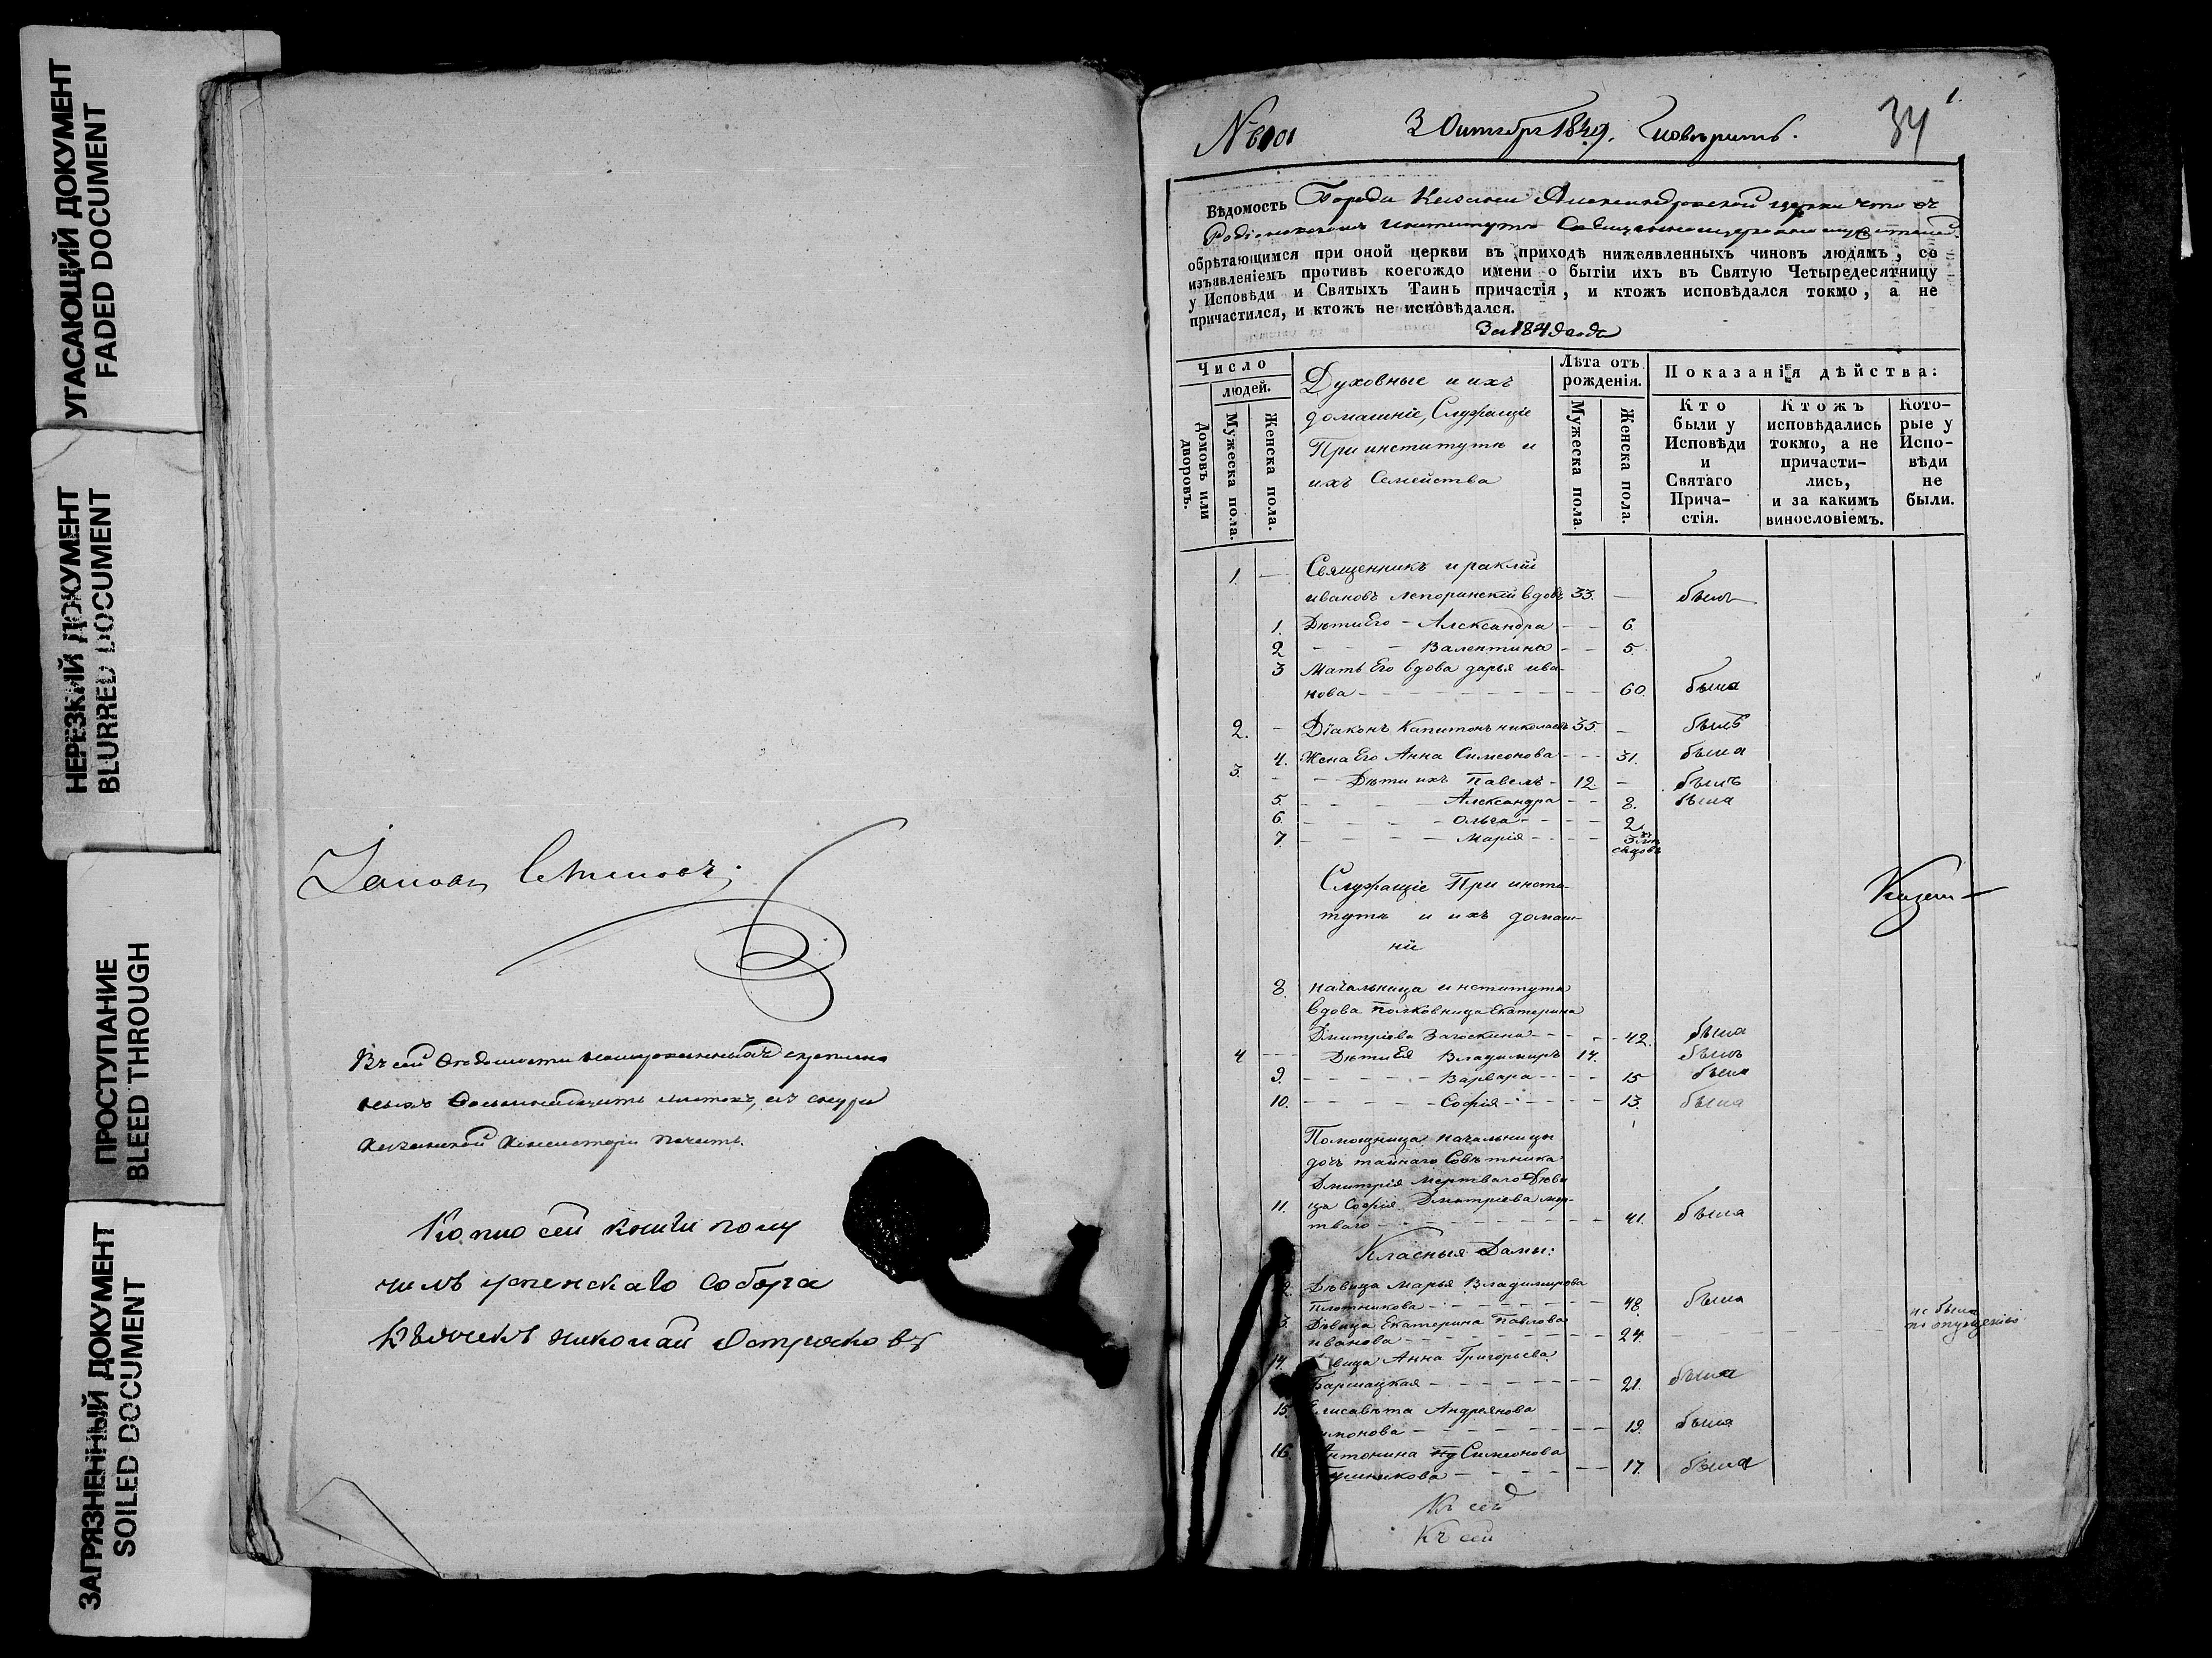 УГАСАЮЩИЙ ДОКУМЕНТ
FADED DOCUMENT
НЕРЕЗКИЙ ДОКУМЕНТ
BLURRED DOCUMENT
ПРОСТУПАНИЕ
BLEED THROUGH
ЗАГРЯЗНЕННЫЙ ДОКУМЕНТ
SOILED DOCUMENT
Въ сей
листовъ, къ снуру
Казанской Консисторіи печать.
Копию сей книги полу
чилъ успенскаго Собора
Николай Остряковъ
3 Октября 1849.
34
1.
Вѣдомость Города Казани Александровской церкви что въ
Родіоновскомъ институтѣ
обрѣтающимся при оной церкви въ приходѣ нижеявленныхъ чиновъ людямъ, со
изъявленіемъ противъ коегождо имени о бытіи ихъ въ Святую Четыредесятницу
у Исповѣди и Святыхъ Таинъ причастія, и ктожъ исповѣдался токмо, а не
причастился, и ктожъ не исповѣдался.
За 1849 года
Число
людей.
Домовъ или дворовъ.
Мужеска пола.
Женска пола.
Духовные и ихъ
домашніе, Служащіе
При институтѣ и
ихъ Семейства
Лѣта отъ
рожденія.
Мужеска пола.
Женска пола.
Показанія дѣйства:
Кто
были у
Исповѣди
и
Святаго
Прича-
стія.
Ктожъ
исповѣдались
токмо, а не
причасти-
лись,
и за какимъ
винословіемъ.
Кото-
рые у
Испо-
вѣди
не
были.
1. — Священникъ ираклій
ивановъ лепоринскій вдовъ 33. — былъ
1. Дѣти Его - Александра - - 6.
2 - - - Валентина - - 5.
3 Мать Его вдова дарья ива-
нова - - - 60. была
2. - Діаконъ Капитонъ николаевъ 35. - былъ
4. Жена Его Анна Симеонова - - - 31. была
3. - - Дѣти ихъ Павелъ - 12. - былъ
5. - - - Александра - - 8. была
6. - - - Ольга - - - 2.
7 - - - Марія - - - 3
Служащіе При инсти-
тутѣ и ихъ домаш-
ніи
Казан
8. начальница института
вдова Полковница Екатерина
Дмитріева Загоскина - - - 42. была
4 - - - Дѣти Ея Владимиръ 17. былъ
9. - - - Варвара - - - 15 была
10. - - - Софія - - - 13. была
Помощница начальницы
дочь тайнаго Совѣтника
Дмитрія Мертваго Дѣви
11. ца Софія Дмитріева мер-
тваго - - - 41. была
Класныя Дамы:
2. Дѣвица Марья Владимирова
Плотникова - - - 48. была
3. Дѣвица Екатерина Павлова
иванова - - - 24. не была
по опущенію
14. вица Анна Григорьева
- - - 21. была
15. Елисавета Андреянова
имонова - - - 19. была
16. Антонина Симеонова
- - - 17. была
Къ сей
Къ сей